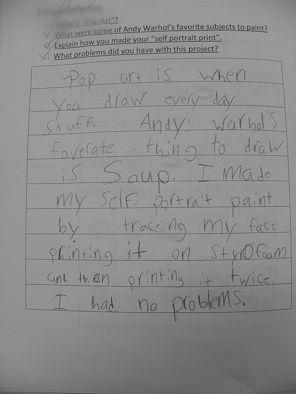 What is "Pop Art"?
What were some of Andy Warhol's favorite subjects to paint?
Explain how you made your "self portrait print".
What problems did you have with this project?
Pop art is when
you draw every day
stuff Andy Warhol's
faverate thing to draw
is Soup. I made
my self portrait paint
by traceing my face
printing it on Styrofoam
and then printing it twice.
I had no problems.